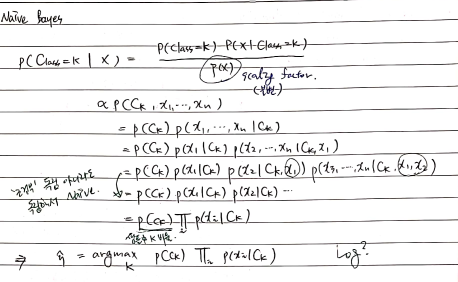 Naive Bayes
P(Class=k | X) = P(Class=k) P(X | Class=k) / P(X) scaling factor.
∝ P(Ck, x1, ..., xn)
= P(Ck) p(x1, ..., xn | Ck)
= P(Ck) p(x1 | Ck) p(x2, ..., xn | Ck, x1)
= P(Ck) p(x1 | Ck) p(x2 | Ck, x1) p(x3, ..., xn | Ck, x1, x2)
= P(Ck) p(x1 | Ck) p(x2 | Ck) ...
Naive.
= P(Ck) ∏i p(xi | Ck)
⇒ ŷ = argmax k P(Ck) ∏i p(xi | Ck) Log?